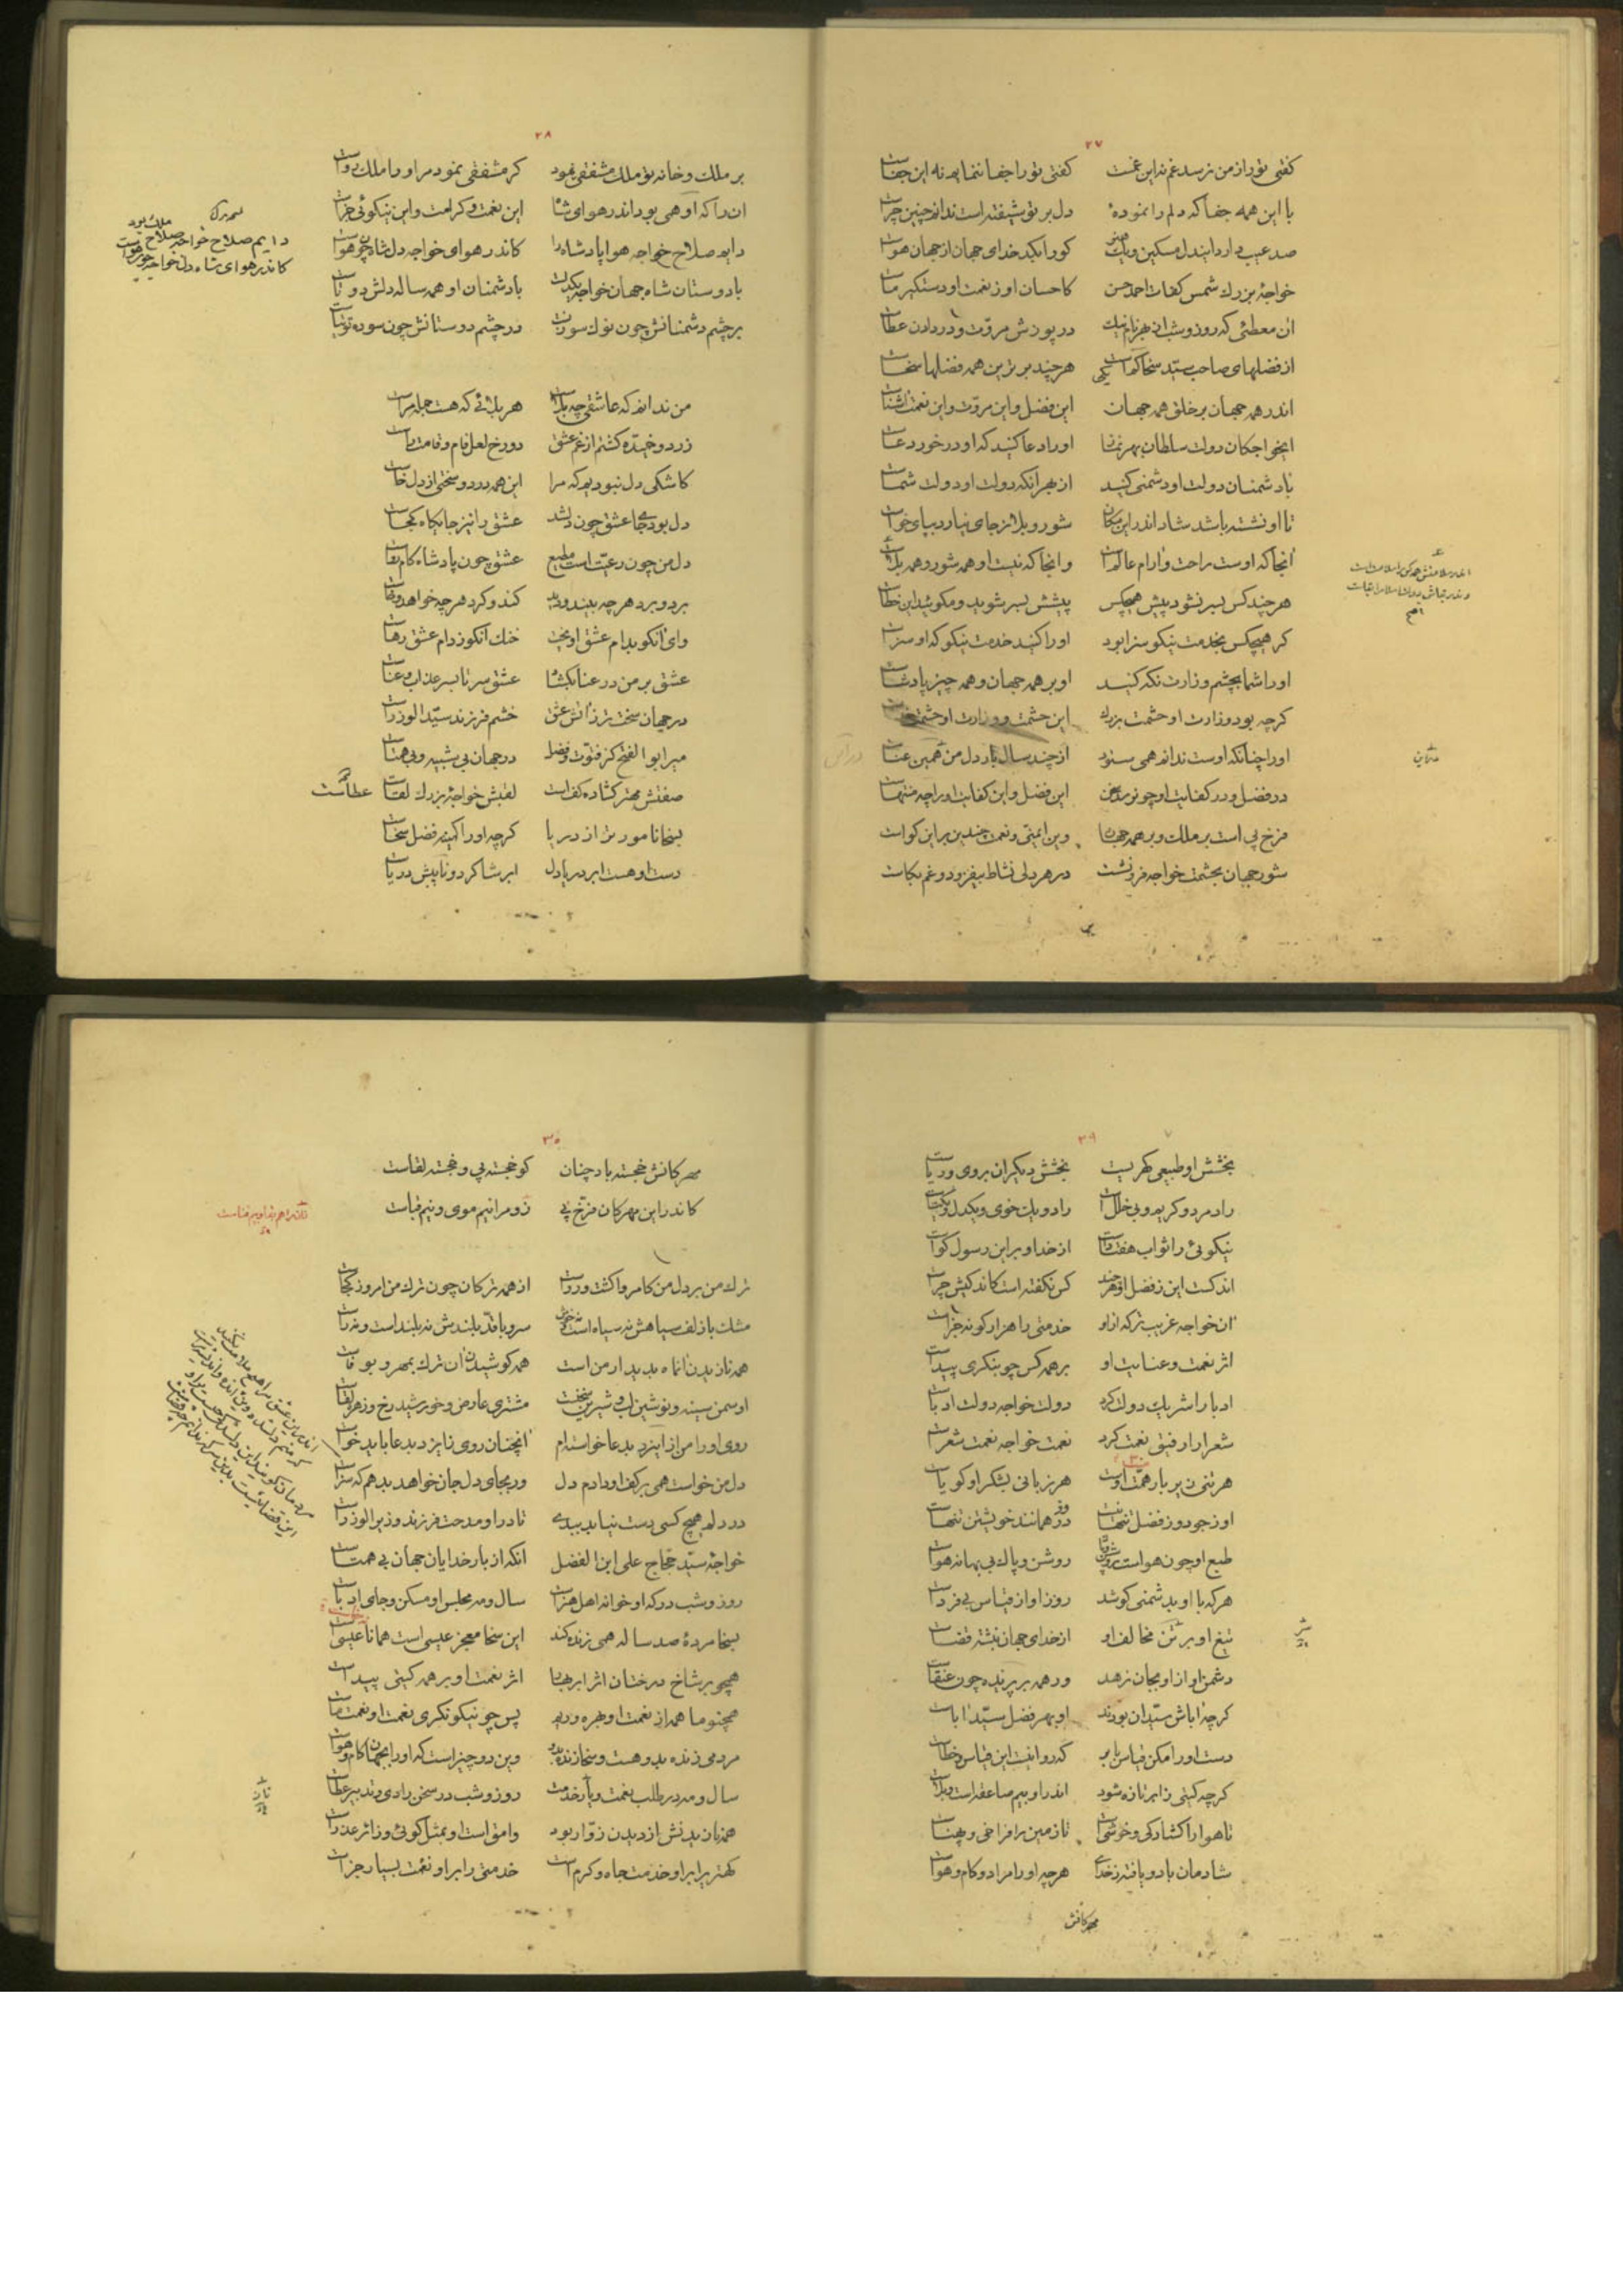 ۲۷
کفتی تو را از من نرسد غم نه این غمست    کفتی تو را جفا ننمایم نه این جفاست
با این همه جفا که دلم را نمودهٔ    دل بر تو شیفته است ندانم چنین چراست
صد عیب دارد ایندل مسکین و یک هنر    کورا بکدخدای جهان از جهان هواست
خواجهٔ بزرک شمس کفات احمد حسن    کاحسان او ز نعمت او دستکیر ماست
ان معطئی که روز و شب از بهر نام نیک    در پوزش مروّت و در دادن عطاست
از فضلهای صاحب سیّد سخا یکی است    هر چند برترین همه فضلها سخاست
اندر همه جهان بر خلق همه جهان    این فضل و این مروّت و این نعمت و ثناست
ایخواجکان دولت سلطان بهر نماز    او را دعا کنید که او در خور دعاست
با دشمنان دولت او دشمنی کنید    از بهر انکه دولت او دولت شماست
تا او نشسته باشد شاد اندر این مکان    شور و بلا ز جای نیارد بپای خواست
انجا که اوست راحت و ارام عالم است    و انجا که نیست او همه شور و همه بلاست
هر چند کس بسر نشود پیش هیچکس    پیشش بسر شوید و مکوئید این خطاست
کر هیچکس بخدمت نیکو سزا بود    او را کنید خدمت نیکو که او سزاست
او را شما بچشم وزارت نکه کنید    او بر همه جهان و همه چیز پادشاست
کرچه بود وزارت او حشمت بزرک    این حشمت و وزارت او حشمت
او را چنانکه اوست ندانم همی ستود    از چند سال باز دل من همین عناست
در فضل و در کفایت او چون رسد سخن    این فضل و این کفایت او را چه منتهاست
فرّخ پی است بر ملک و بر همه جهان    وین ایمنی و نعمت چندین بر این کواست
شور جهان بحشمت خواجه فرو نشست    در هر دلی نشاط بیفزود و غم بکاست
۲۸
بر ملک و خانه تو ملک مشفقی نمود    کر مشفقی نمود مر او را ملک رواست
ان را که او همی بود اندر هوای شاه    این نعمت و کرامت و این نیکوئی جزاست
دایم صلاح خواجه هوا پادشاه را    کاندر هوای خواجه دل شاه چون هواست
با دوستان شاه جهان خواجه یکدلست    با دشمنان او همه ساله دلش دو تاست
بر چشم دشمنانش چون نوک سوزنست    در چشم دوستانش چون سوده توتیاست
من ندانم که عاشقی چه بلاست    هر بلائی که هست جمله مراست
زرد و خمیده کشتم از غم عشق    دو رخ لعل فام و قامت راست
کاشکی دل نبودیم که مرا    این همه درد و سختی از دل خاست
دل بود جای عشق چون دل شد    عشق را نیز جایکاه کجاست
دل من چون رعیّت است مطیع    عشق چون پادشاه کامرواست
برد و برد هر چه بیند و دید    کند و کرد هر چه خواهد و خواست
وای انکو بدام عشق اویخت    خنک انکو ز دام عشق رهاست
عشق بر من در عنا بکشاد    عشق سر تا بسر عذاب و عناست
در جهان سخت تر ز اتش عشق    خشم فرزند سیّد الوزراست
میر ابو الفتح کز فتوّت و فضل    در جهان بی شبیه و بی همتاست
صفتش مهتر کشاده کف است    لقبش خواجهٔ بزرک لقاست
عطاست
بسخا نامور تر از دریا    کرچه او را کمینه فضل سخاست
دست او هست ابر و دریا دل    ابر شاکرد و نایبش دریاست
۲۹
بخشش او طبیعی کهریست    بخشش دیکران بروی و ریاست
راد مرد و کریم و بی خلل است    راد و یک خوی و یکدل و یکتاست
نیکوئی را ثواب هفتاد است    از خدا و بر این رسول کواست
اندکست این ز فضل او هر چند    کس نکفته است کاندکیش چراست
ان خواجه غریب ترکه از او    خدمتی را هزار کونه جزاست
اثر نعمت و عنایت او    بر همه کس چو بنکری پیداست
ادبا را شریک دولت کرد    دولت خواجه دولت ادباست
شعرا را رفیق نعمت کرد    نعمت خواجه نعمت شعراست
هر تنی زیر بار همّت اوست    هر زبانی بشکر او کویاست
او ز جود و ز فضل تنها نیست    در همه مانند خویشتن تنهاست
طبع او چون هواست روشن و پاک    روشن و پاک بی بهانه هواست
هر که با او بدشمنی کوشد    روز او از قیاس بی فرداست
تیغ او بر تن مخالف او    از خدای جهان نبشته قضاست
دشمن او از او بجان نرهد    ور همه بر پرد چون عنقاست
کرچه اباش سیّدان بودند    او بهر فضل سیّد اباست
دست او را مکن قیاس بابر    که روا نیست این قیاس و خطاست
کرچه کیتی ز ابر تازه شود    اندر او بیم صاعقه است و بلاست
تا هوا را کشادکی و خوشی است    تا زمین را فراخی و پهناست
شادمان باد و یافته ز خدای    هر چه او را مراد و کام و هواست
مهرکانش
۳۰
مهرکانش خجسته باد چنان    کو خجسته پی و خجسته لقاست
کاندر این مهرکان فرّخ پی    زو مرا نیم موی و نیم قباست
ترک من بر دل من کامروا کشت و رواست    از همه ترکان چون ترک من امروز کجاست
مشک با زلف سیاهش نه سیاه است و نه خوش    سرو با قدّ بلندش نه بلند است و نه راست
همه نازیدن ان ماه بدیدار من است    همه کوشیدن ان ترک بمهر و بوفاست
او سمن سینه و نوشین لب و شیرین سخنست    مشتری عارض و خورشید رخ و زهره لقاست
روی او را من از ایزد بدعا خواسته ام    انچنان روی ز ایزد بدعا باید خواست
دل من خواست همی بر کف او دادم دل    ور بجای دل جان خواهد بدهم که سزاست
در دلم هیچ کسی دست نیابد ببدی    تا در او مدحت فرزند وزیر الوزراست
خواجهٔ سیّد حجّاج علی ابن الفضل    انکه از بار خدایان جهان بی همتاست
روز و شب درکه او خانه اهل هنر است    سال و مه مجلس او مسکن و جای ادباست
بسخا مردهٔ صد ساله همی زنده کند    این سخا معجز عیسی است همانا عیسی است
همچو بر شاخ درختان اثر ابر بهار    اثر نعمت او بر همه کیتی پیداست
همچو ما همه از نعمت او بهره وریم    پس چو نیکو نکری نعمت او نعمت ماست
مردمی زنده بدو هست و سخا زنده بدو    وین دو چیز است که او را بجهان کام و هواست
سال و مه در طلب نعمت و خدمت    روز و شب در سخن رادی و تدبیر عطاست
همه نازیدنش از دیدن زوّار بود    وامق است او بمثل کوئی و زائر عذراست
کهتریرا بر او خدمت جاه و کرم است    خدمتی را بر او نعمت بسیار جزاست